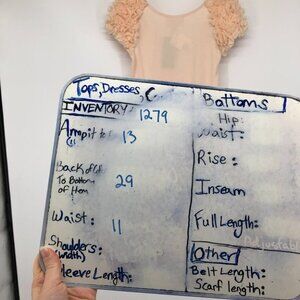 Tops, Dresses, C
INVENTORY: 1279
Armpit to
13
Back of
To Bottom
of Hem
29
Waist: 11
Shoulders:
(width)
Sleeve Length:
Bottoms
Hip:
Waist:
Rise:
Inseam
Full Length:
Adjustabl
Other
Belt Length:
Scarf length: